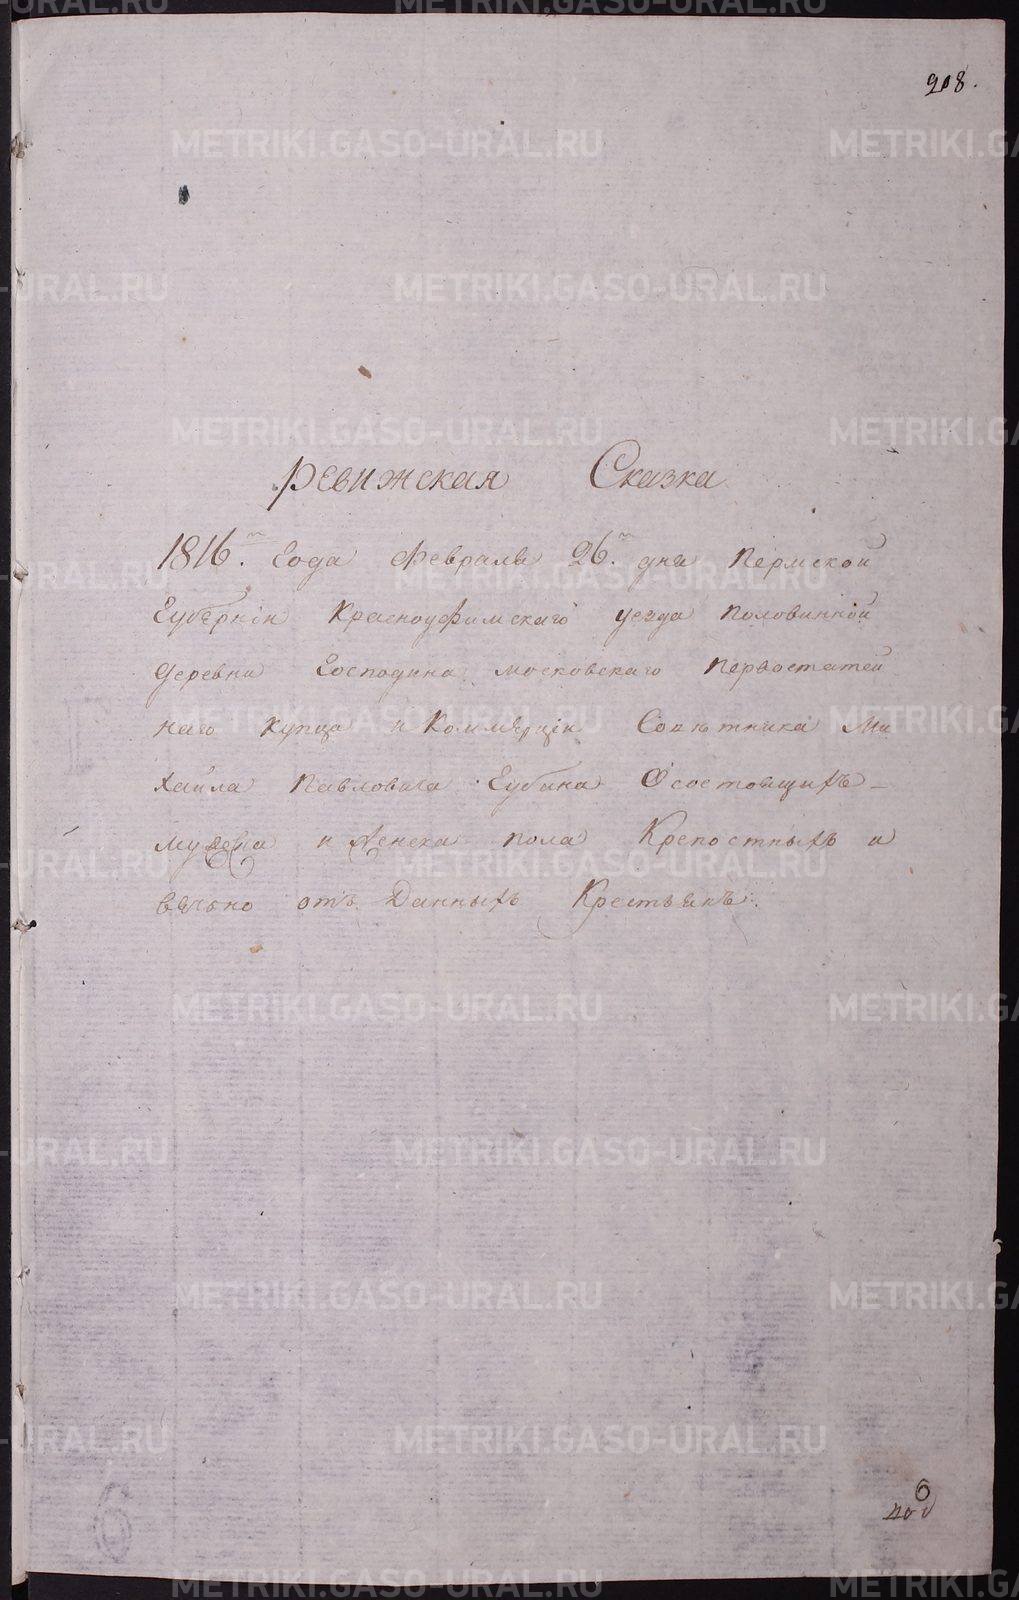 208.
Ревижская Сказка
1816.го Года Февраля 26.го дня Пермской
Губернiи Красноуфимскаго уезда Половинной
деревни Господина московскаго первостатей
наго купца и Коммерцiи Советника Ми
хайла Павловича Губина О состоящихъ
мужеска и женска пола Крепостныхъ и
вечно отъ Данныхъ Крестьянъ.
6
METRIKI.GASO-URAL.RU